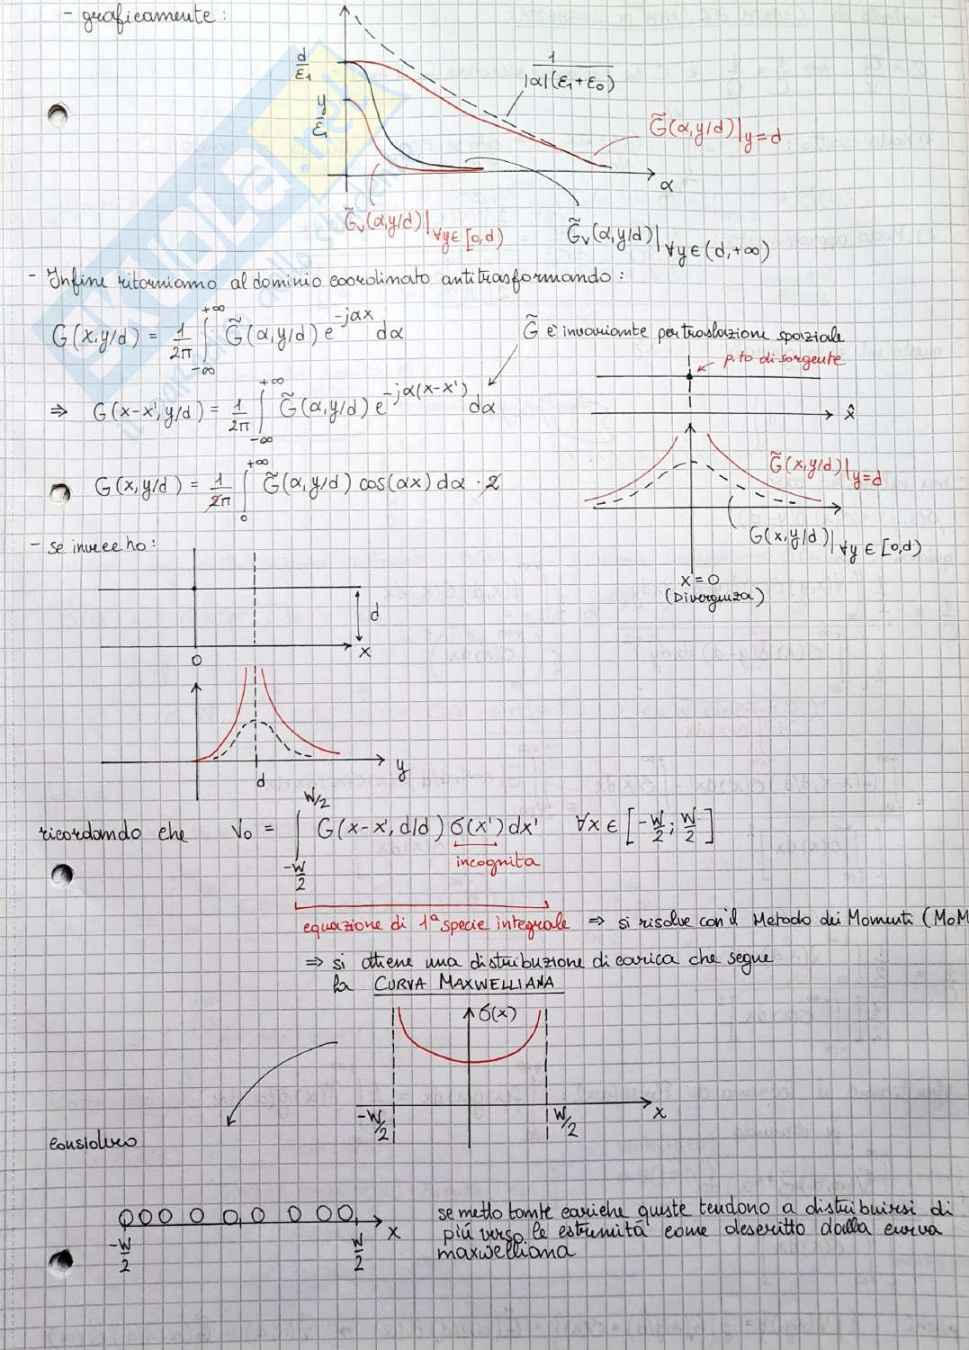 - graficamente:
d/ε₁
y/ε₁
1/(|α|(ε₁+ε₀))
G̃(α,y/d)|y=d
α
G̃ᵥ(α,y/d)|∀y∈[0,d)
G̃ᵥ(α,y/d)|∀y∈(d,+∞)
- Infine ritorniamo al dominio coordinato antitrasformando:
G(x,y/d) = 1/2π ∫_{-∞}^{+∞} G̃(α,y/d) e^{-jαx} dα
G̃ è invariante per traslazione spaziale
p.to di sorgente
⇒ G(x-x',y/d) = 1/2π ∫_{-∞}^{+∞} G̃(α,y/d) e^{-jα(x-x')} dα
x̂
G(x,y/d) = 1/2π ∫_{0}^{+∞} G̃(α,y/d) cos(αx) dα · 2
G̃(x,y/d)|y=d
G(x,y/d)|∀y∈[0,d)
x=0
(Divergenza)
- se invece ho:
d
0
x
d
y
ricordando che V₀ = ∫_{-W/2}^{W/2} G(x-x',d/d) σ(x') dx' ∀x ∈ [-W/2; W/2]
incognita
equazione di 1ª specie integrale ⇒ si risolve con il Metodo dei Momenti (MoM
⇒ si ottiene una distribuzione di carica che segue
la CURVA MAXWELLIANA
σ(x)
-W/2
W/2
x
considero
x
-W/2
W/2
se metto tante cariche queste tendono a distribuirsi di
più verso le estremità come descritto dalla curva
maxwelliana
SKUOLA.net